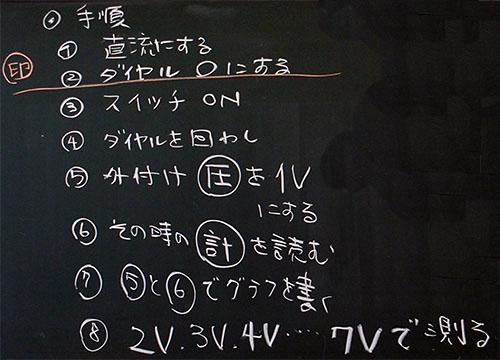 ◎ 手順
① 直流にする
印 ② ダイヤル 0にする
③ スイッチ ON
④ ダイヤルを回わし
⑤ 外付け 圧 を 1V
にする
⑥ その時の 計 を読む
⑦ ⑤と⑥でグラフを書く
⑧ 2V.3V.4V‥‥ 7Vで測る